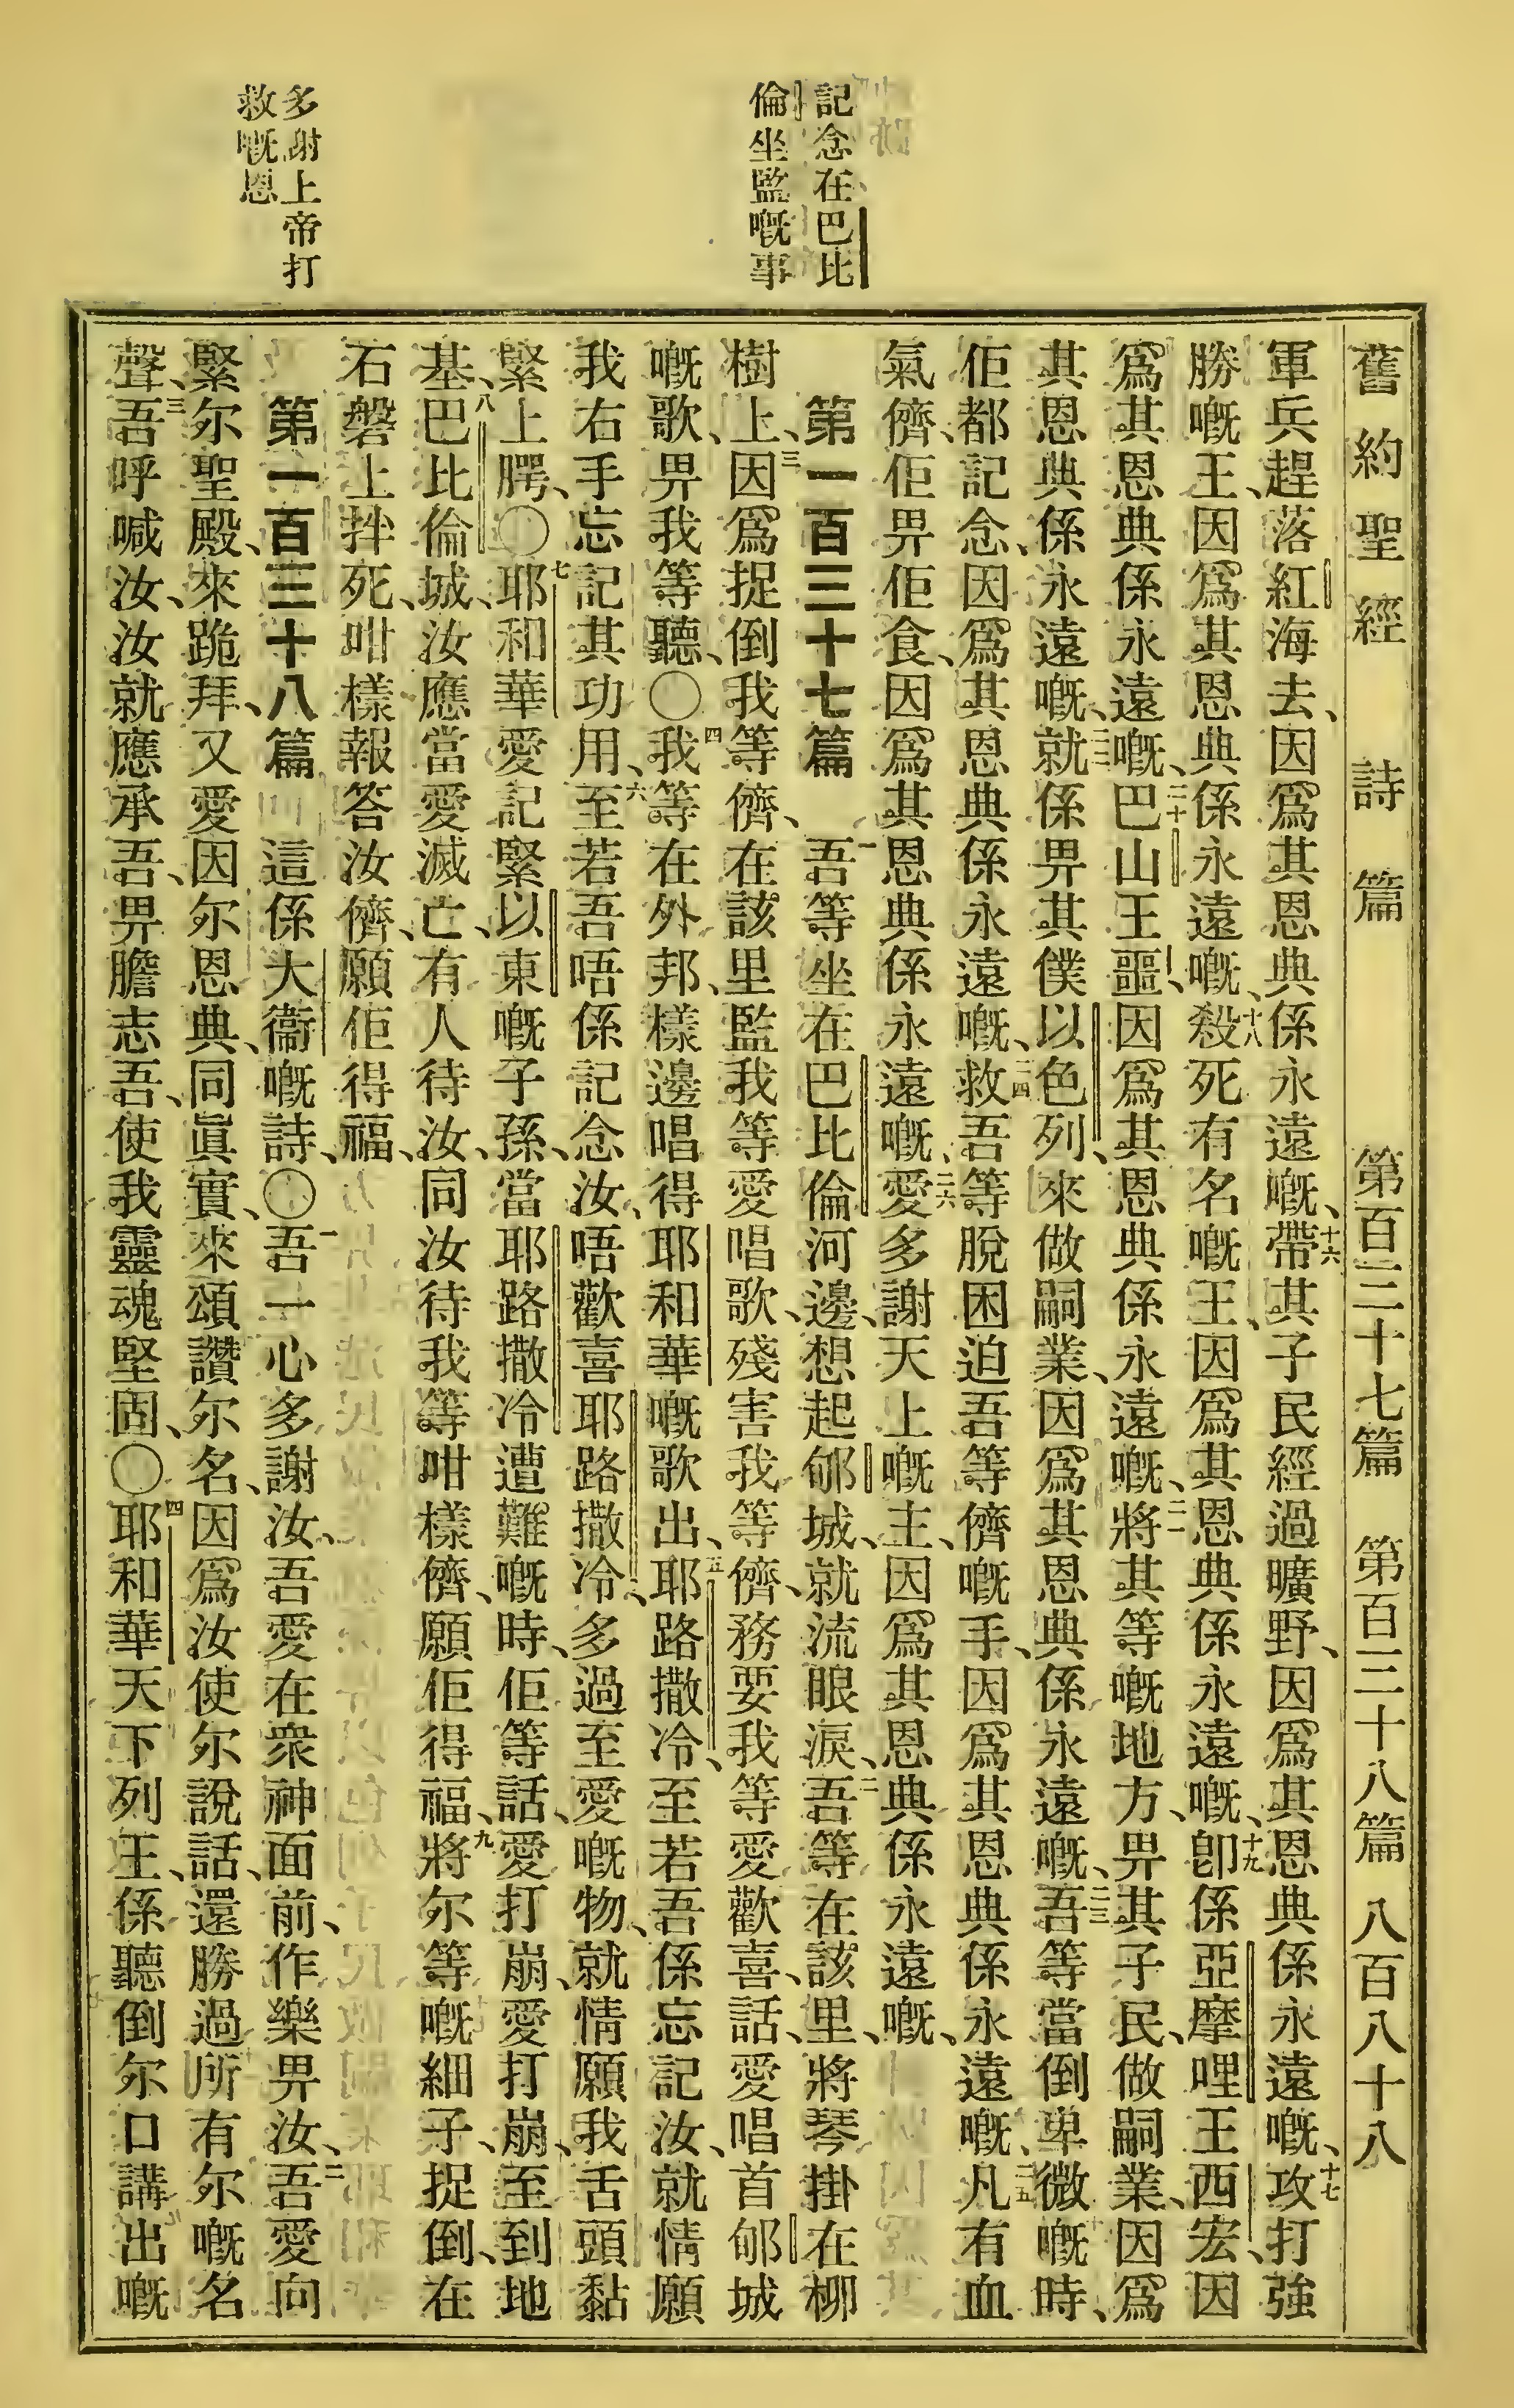 舊約聖經 詩篇 第百三十七篇 第百三十八篇 八百八十八
記念在巴比
倫坐監嘅事
多謝上帝打
救嘅恩
軍兵趕落紅海去、因爲其恩典係永遠嘅、十六帶其子民經過曠野、因爲其恩典係永遠嘅、十七攻打強
勝嘅王、因爲其恩典係永遠嘅、十八殺死有名嘅王、因爲其恩典係永遠嘅、十九卽係亞摩哩王西宏、因
爲其恩典係永遠嘅、二十巴山王噩、因爲其恩典係永遠嘅、二一將其等嘅地方、畀其子民、做嗣業、因爲
其恩典係永遠嘅、二二就係畀其僕以色列、來做嗣業、因爲其恩典係永遠嘅、二三吾等當倒卑微嘅時、
佢都記念、因爲其恩典係永遠嘅、二四救吾等脫困迫吾等儕嘅手、因爲其恩典係永遠嘅、二五凡有血
氣儕、佢畀佢食、因爲其恩典係永遠嘅、二六愛多謝天上嘅主、因爲其恩典係永遠嘅、
第一百三十七篇 一吾等坐在巴比倫河邊、想起郇城、就流眼淚、二吾等在該里、將琴掛在柳
樹上、三因爲捉倒我等儕、在該里監我等愛唱歌、殘害我等儕、務要我等愛歡喜、話、愛唱首郇城
嘅歌、畀我等聽、〇四我等在外邦、樣邊唱得耶和華嘅歌出、五耶路撒冷、至若吾係忘記汝、就情願
我右手忘記其功用、六至若吾唔係記念汝、唔歡喜耶路撒冷、多過至愛嘅物、就情願我舌頭黏
緊上腭、〇七耶和華愛記緊以東嘅子孫、當耶路撒冷遭難嘅時、佢等話、愛打崩、愛打崩、至到地
基、八巴比倫城、汝應當愛滅亡、有人待汝、同汝待我等咁樣儕、願佢得福、九將尔等嘅細子、捉倒、在
石磐上拌死、咁樣報答汝儕、願佢得福、
第一百三十八篇 這係大衞嘅詩、〇一吾一心多謝汝、吾愛在衆神面前、作樂畀汝、二吾愛向
緊尔聖殿、來跪拜、又愛因尔恩典、同眞實、來頌讚尔名、因爲汝使尔說話、還勝過所有尔嘅名
聲、三吾呼喊汝、汝就應承吾、畀膽志吾、使我靈魂堅固、〇四耶和華天下列王、係聽倒尔口講出嘅